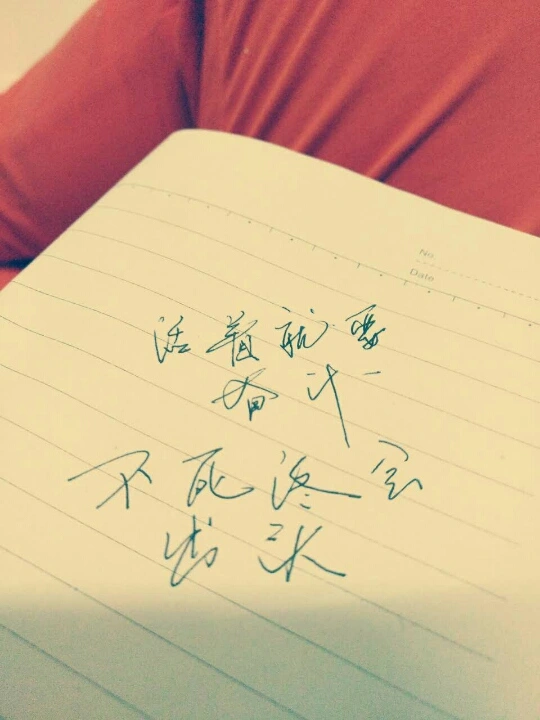 No.
Date
活着就要
奋斗
不死终会
出头